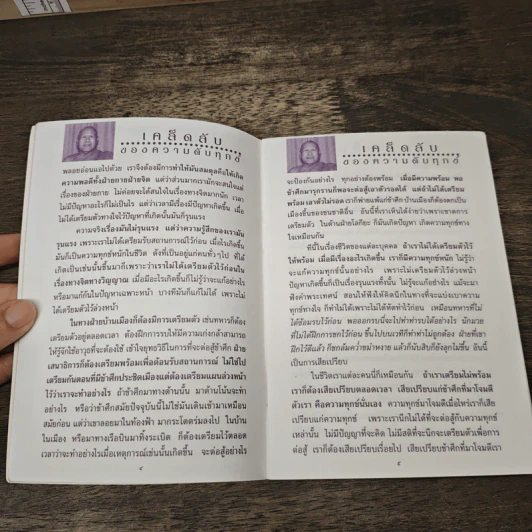 เคล็ดลับ
ของความดับทุกข์
พลอยอ่อนแอไปด้วย เราจึงต้องมีการทำให้มันสมดุลคือให้เกิด
ความพอดีทั้งฝ่ายกายฝ่ายจิต แต่ว่าส่วนมากเรามักจะสนใจแต่
เรื่องของฝ่ายกาย ไม่ค่อยจะได้สนใจในเรื่องทางจิตมากนัก เวลา
ไม่มีปัญหาอะไรก็ไม่เป็นไร แต่ว่าเวลามีเรื่องมีปัญหาเกิดขึ้น เมื่อ
ไม่ได้เตรียมตัวทางใจไว้ปัญหาที่เกิดนั้นมันก็รุนแรง
ความจริงเรื่องมันไม่รุนแรง แต่ว่าความรู้สึกของเรามัน
รุนแรง เพราะเราไม่ได้เตรียมรับสถานการณ์ไว้ก่อน เมื่อเรื่องเกิดขึ้น
มันก็เป็นความทุกข์หนักในชีวิต ดังที่เป็นอยู่แก่คนทั่วๆไป ที่ได้
เกิดเป็นเช่นนั้นขึ้นมาก็เพราะว่าเราไม่ได้เตรียมตัวไว้ก่อนใน
เรื่องทางจิตทางวิญญาณ เมื่อมีอะไรเกิดขึ้นก็ไม่รู้ว่าจะแก้อย่างไร
หรือมาแก้กันในปัญหาเฉพาะหน้า บางทีมันก็แก้ไม่ได้ เพราะไม่
ได้เตรียมตัวไว้ล่วงหน้า
ในทางฝ่ายบ้านเมืองก็ต้องมีการเตรียมตัว เช่นทหารก็ต้อง
เตรียมตัวอยู่ตลอดเวลา ต้องฝึกการรบให้มีความเก่งกล้าสามารถ
ให้รู้จักใช้อาวุธที่จะต้องใช้ เข้าใจยุทธวิธีในการที่จะต่อสู้ข้าศึก ฝ่าย
เสนาธิการก็ต้องเตรียมพร้อมเพื่อต้อนรับสถานการณ์ ไม่ใช่ไป
เตรียมกันตอนที่มีข้าศึกประชิดเมืองแต่ต้องเตรียมแผนล่วงหน้า
ไว้ว่าเราจะทำอย่างไร ถ้าข้าศึกมาทางด้านนั้น มาด้านโน้นจะทำ
อย่างไร หรือว่าข้าศึกสมัยปัจจุบันนี้ไม่ใช่มันเดินเข้ามาเหมือน
สมัยก่อน แต่ว่าเขาลอยมาในท้องฟ้า มากระโดดร่มลงไป ในบ้าน
ในเมือง หรือมาทางเรือบินมาทิ้งระเบิด ก็ต้องเตรียมไว้ตลอด
เวลาว่าจะทำอย่างไรเมื่อเหตุการณ์เช่นนั้นเกิดขึ้น จะต่อสู้อย่างไร
๔
เคล็ดลับ
ของความดับทุกข์
จะป้องกันอย่างไร ทุกอย่างต้องพร้อม เมื่อมีความพร้อม พอ
ข้าศึกมารุกรานก็พอจะต่อสู้เอาตัวรอดได้ แต่ถ้าไม่ได้เตรียม
พร้อม เอาตัวไม่รอด เราก็พ่ายแพ้แก่ข้าศึก บ้านเมืองก็ต้องตกเป็น
เมืองขึ้นของชนชาติอื่น อันนี้ที่เราเห็นได้ง่ายว่าเพราะขาดการ
เตรียมตัว ในด้านฝ่ายโลกียะ ก็มันเกิดปัญหา เกิดความทุกข์ทาง
ใจเหมือนกัน
ทีนี้ในเรื่องชีวิตของแต่ละบุคคล ถ้าเราไม่ได้เตรียมตัวไว้
ให้พร้อม เมื่อมีเรื่องอะไรเกิดขึ้น เราก็มีความทุกข์หนัก ไม่รู้ว่า
จะแก้ความทุกข์นั้นอย่างไร เพราะไม่ได้เตรียมตัวไว้ล่วงหน้า
ปัญหาเกิดขึ้นก็เป็นเรื่องรุนแรงทั้งนั้น ไม่รู้จะแก้อย่างไร แม้จะมา
ฟังคำพระเทศน์ สอนให้ฟังให้คิดนึกในทางที่จะแบ่งเบาความ
ทุกข์ทางใจ ก็ทำไม่ได้เพราะไม่ได้หัดทำไว้ก่อน เหมือนทหารที่ไม่
ได้ซ้อมรบไว้ก่อน พอออกรบจะไปทำท่ารบได้อย่างไร นักมวย
ที่ไม่ได้ฝึกการชกไว้ก่อน ขึ้นไปบนเวทีก็ทำท่าไม่ถูกต้อง ฝ่ายที่เขา
ฝึกไว้ดีแล้ว ก็ชกล้มคว่ำขมำหงาย แล้วก็นับสิบก็ยังลุกไม่ขึ้น อันนี้
เป็นการเสียเปรียบ
ในชีวิตเราแต่ละคนนี่ก็เหมือนกัน ถ้าเราเตรียมไม่พร้อม
เราก็ต้องเสียเปรียบตลอดเวลา เสียเปรียบแก่ข้าศึกที่มาโจมตี
ตัวเรา คือความทุกข์นั่นเอง ความทุกข์มาโจมตีเมื่อไหร่เราก็เสีย
เปรียบแก่ความทุกข์ เพราะเรานึกไม่ได้ที่จะต่อสู้กับความทุกข์
เหล่านั้น ไม่มีปัญญาที่จะคิด ไม่มีสติที่จะนึกจะเตรียมตัวเพื่อการ
ต่อสู้ เราก็ต้องเสียเปรียบเรื่อยไป เสียเปรียบข้าศึกที่มาโจมตีเรา
๕